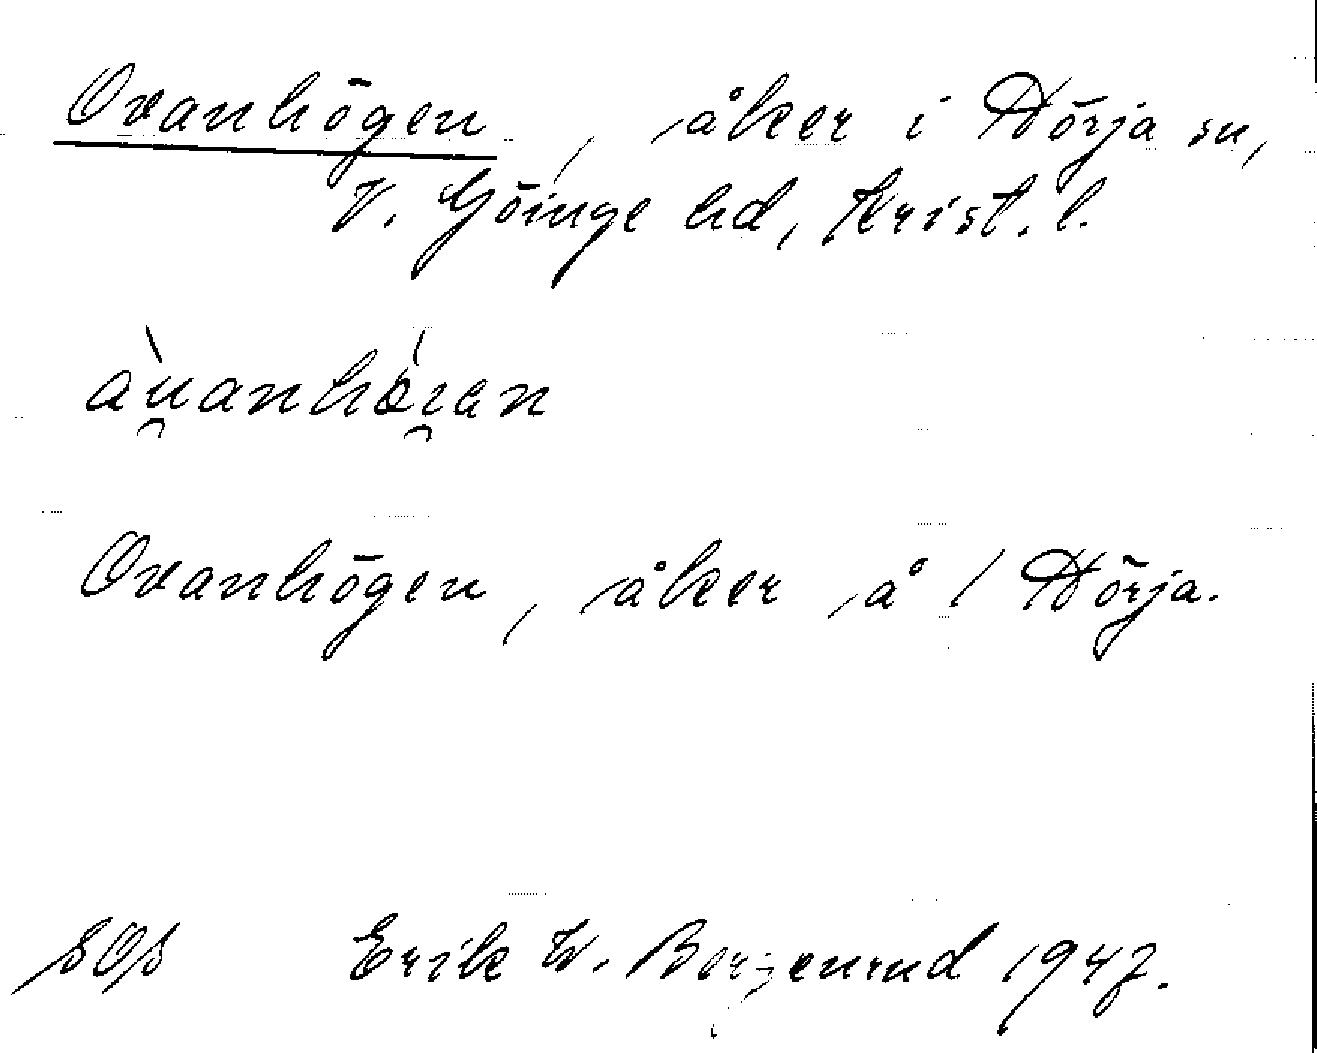 Ovanhögen, åker i Hörja sn,
V. Göinge hd, Krist. l.
Ovanhögen, åker å / Hörja.
Erik W. Bergenrud 1947.